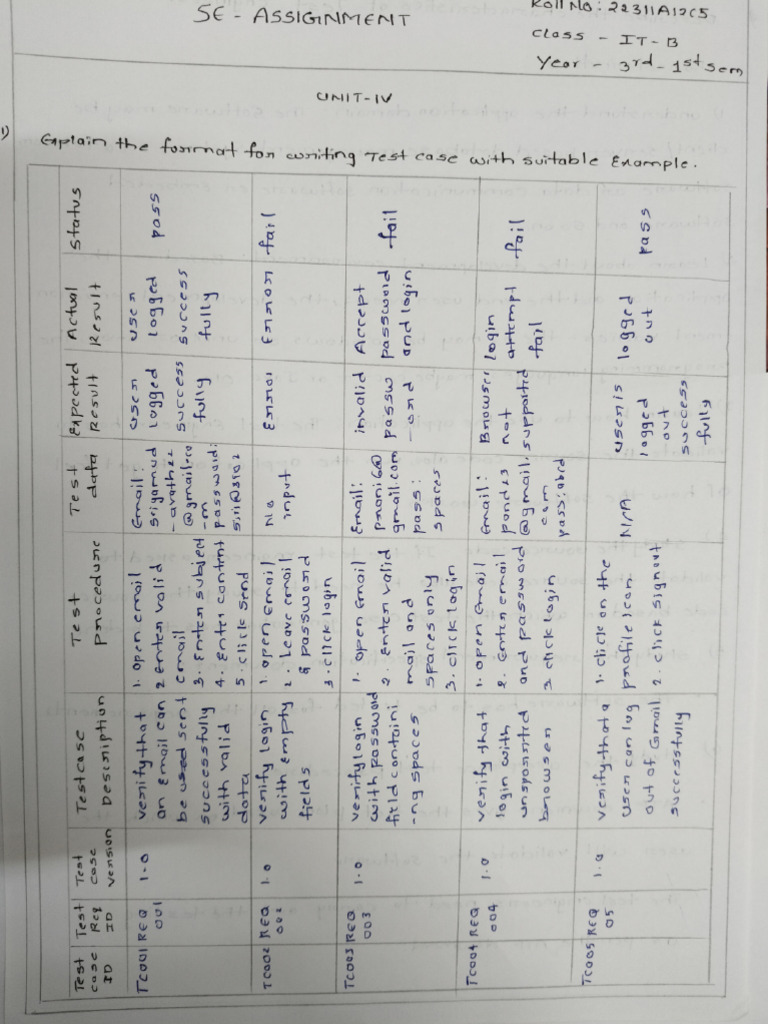 SE - ASSIGNMENT
Roll No: 22311A12C5
Class - IT-B
Year - 3rd-1st sem
UNIT-IV
1) Explain the format for writing Test case with suitable Example.
Test case ID
Test Req ID
Test case version
Testcase Description
Test procedure
Test data
Expected Result
Actual Result
Status
TC001
REQ 001
1.0
verify that
an Email can
be used sent
successfully
with valid
data
1. open email
2 enter valid
email
3. Enter subject
4. enter content
5. click send
Email:
@gmail.co
-m
password:
user
logged
success
fully
user
logged
success
fully
pass
TC002
REQ 002
1.0
verify login
with Empty
fields
1. open Email
2. Leave email
& password
3. click login
No
input
Error
Error
fail
TC003
REQ 003
1.0
verify login
with password
field containi
-ng spaces
1. open Email
2. Enter valid
mail and
spaces only
3. click login
Email:
gmail.com
pass:
spaces
invalid
passw
Accept
password
and login
fail
TC004
REQ 004
1.0
verify that
login with
unsporrted
browser
1. open Email
2. Enter email
and password
3 click login
Email:
@gmail.
com
Browser
not
supported
login
attempt
fail
fail
TC005
REQ 05
1.0
verify that a
user can log
out of Gmail
successfully
1. click on the
profile icon
2. click signout
N/A
user is
logged
out
success
fully
logged
out
pass